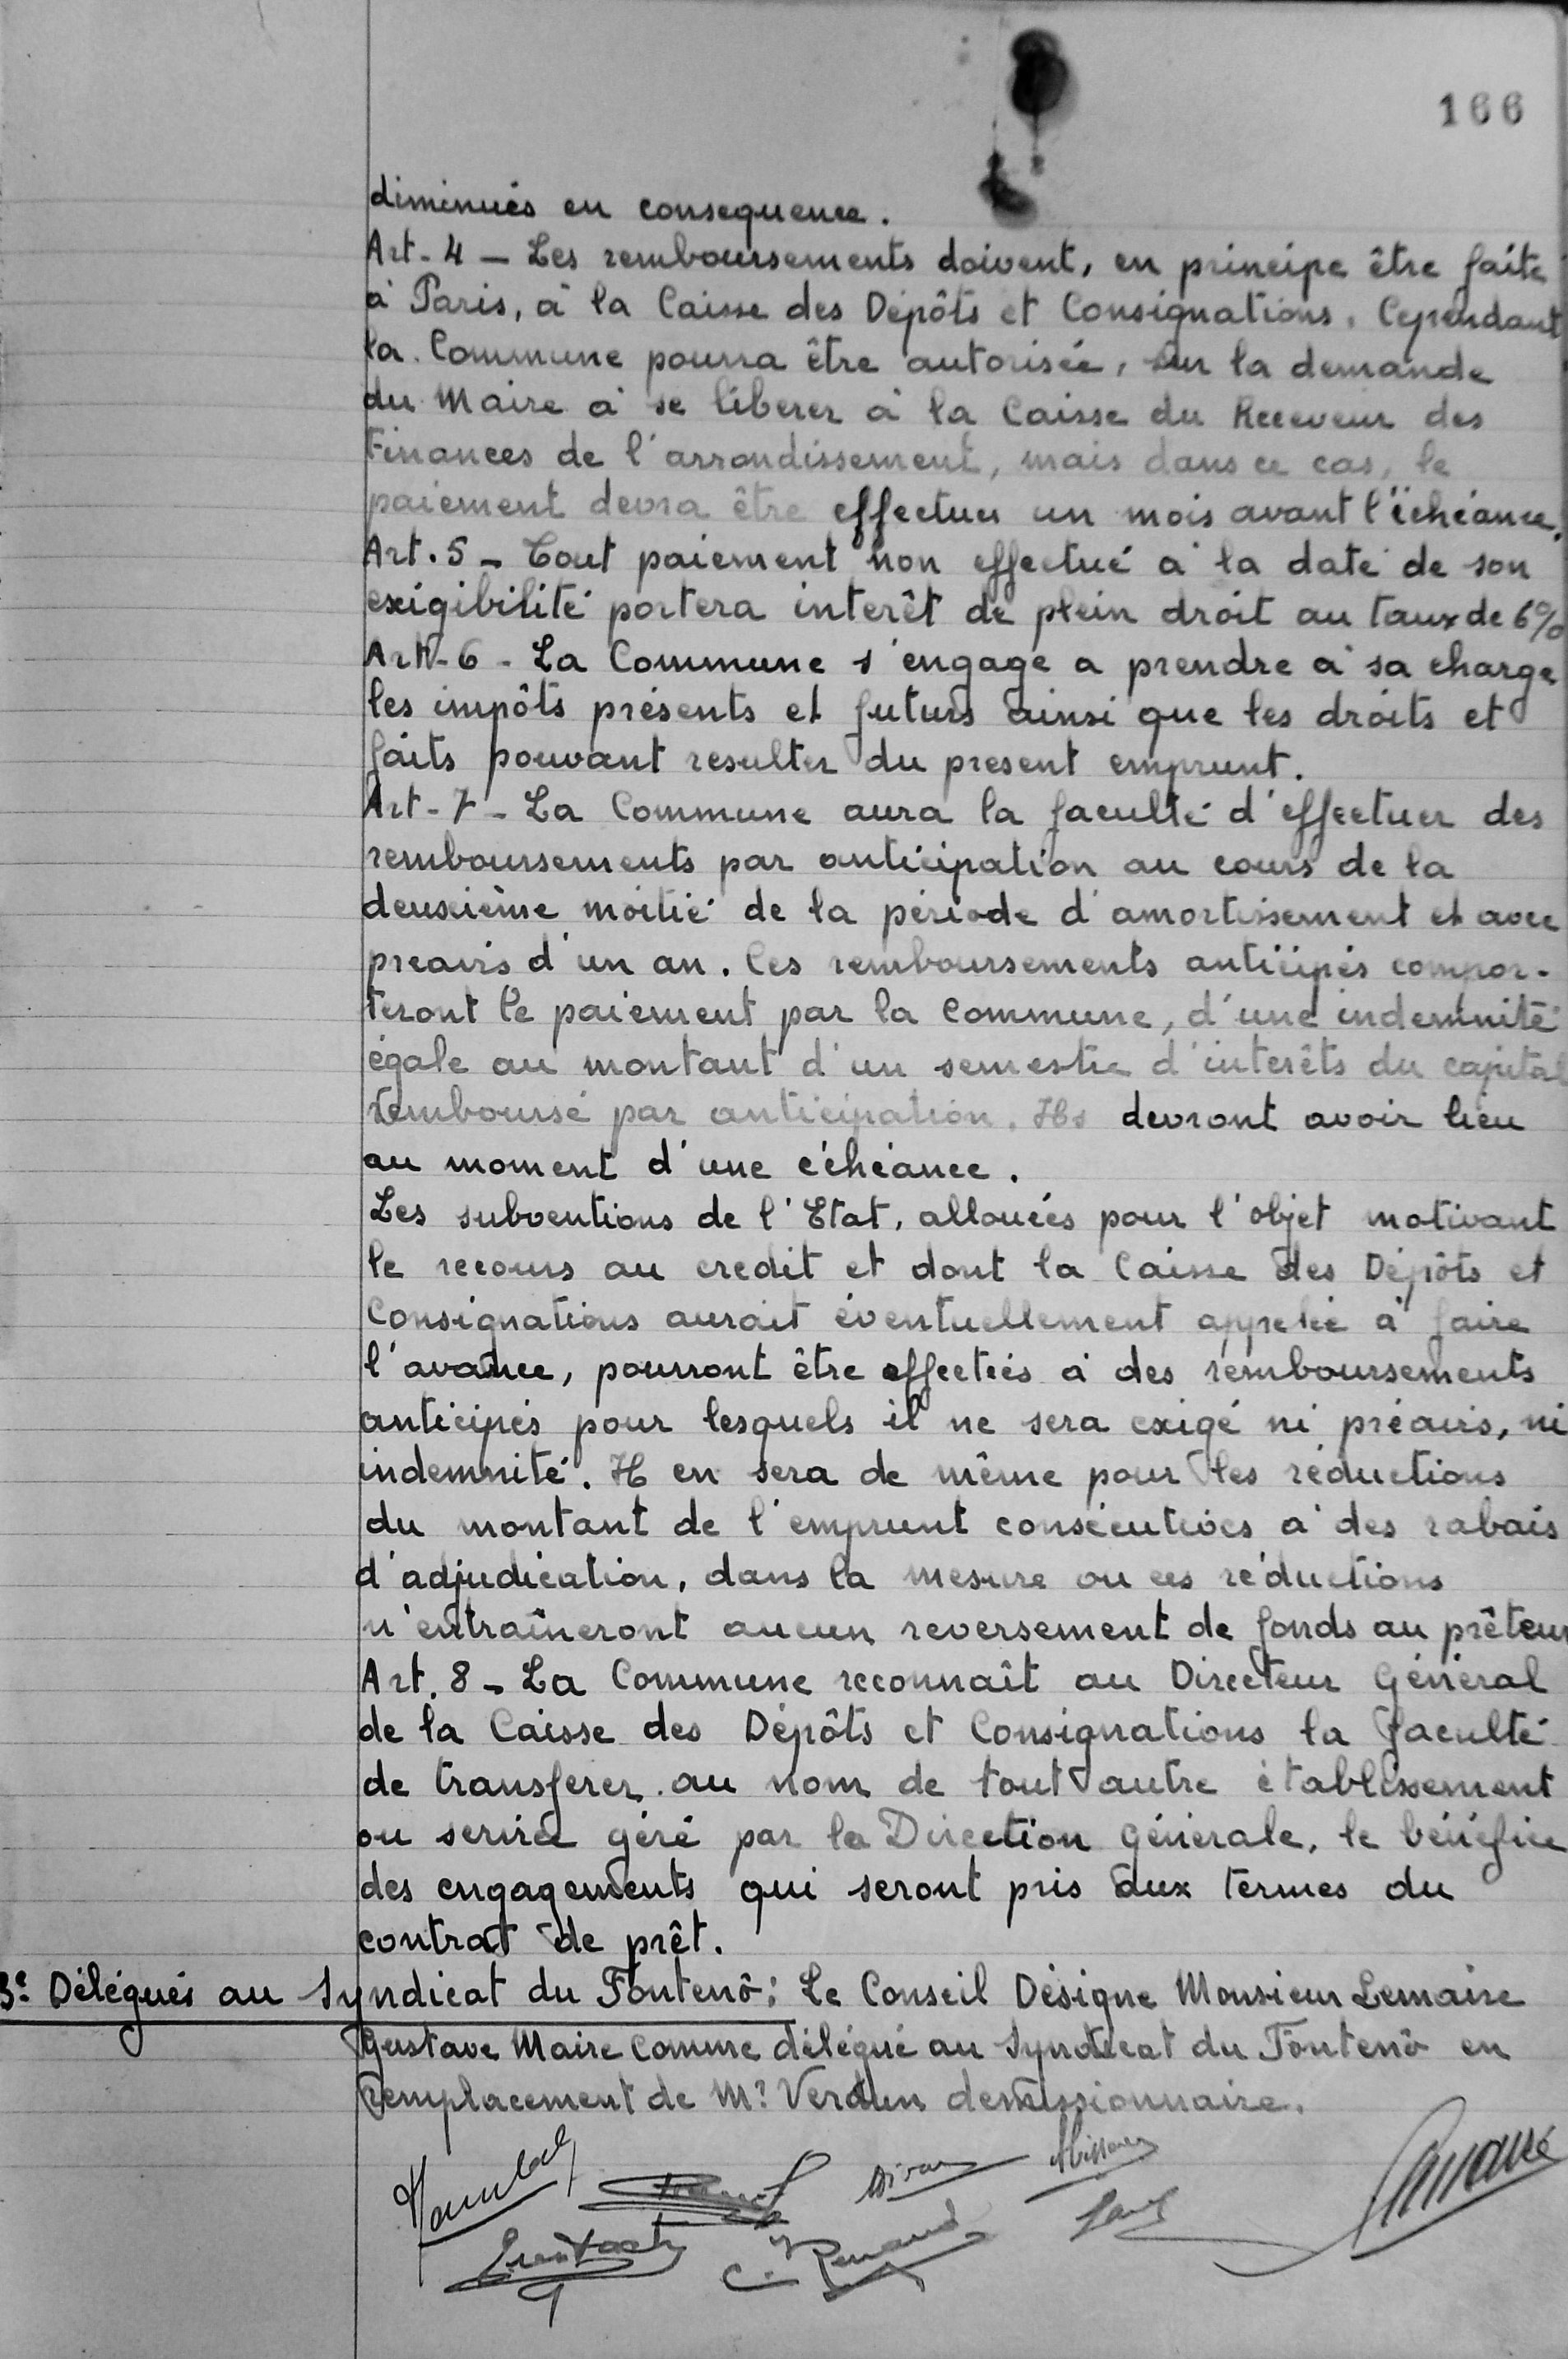 166
diminués en consequence.
Art-4 - Les remboursements doivent, en principe être faite
à Paris, à la Caisse des Dépôts et Consignations. Cependant
la Commune pourra être autorisée, sur la demande
du Maire à se liberer à la Caisse du Receveur des
Finances de l'arrondissement, mais dans ce cas, le
paiement devra être effectuer un mois avant l'échéance.
Art.5 - Tout paiement non effectué à la date de son
exigibilité portera interêt de plein droit au taux de 6%
Art-6 - La Commune s'engage a prendre à sa charge
les impôts présents et futurs ainsi que les droits et
faits pouvant resulter du present emprunt.
Art-7 - La Commune aura la faculté d'effectuer des
remboursements par anticipation au cours de la
deuxième moitié de la période d'amortissement et avec
preavis d'un an. Ces remboursements anticipés compor-
teront le paiement par la Commune, d'une indemnité
égale au montant d'un semestre d'interêts du capital
remboursé par anticipation. Ils devront avoir lieu
au moment d'une échéance.
Les subventions de l'Etat, allouées pour l'objet motivant
le recours au credit et dont la Caisse des Dépôts et
Consignations aurait éventuellement appelée à faire
l'avance, pourront être affectées à des remboursements
anticipés pour lesquels il ne sera exigé ni préavis, ni
indemnité. Il en sera de même pour les réductions
du montant de l'emprunt consécutives à des rabais
d'adjudication, dans la mesure ou ces réductions
n'entraîneront aucun reversement de fonds au prêteur
Art.8 - La Commune reconnaît au Directeur Général
de la Caisse des Dépôts et Consignations la faculté
de transferer au nom de tout autre établissement
ou service géré par la Direction Générale, le bénéfice
des engagements qui seront pris aux termes du
contrat de prêt.
3e Délégués au Syndicat du Fontenô: Le Conseil Désigne Monsieur Lemaire
Gustave Maire comme délégué au Syndicat du Fontenô en
remplacement de Mr Verdun demissionnaire.
C. Renaud